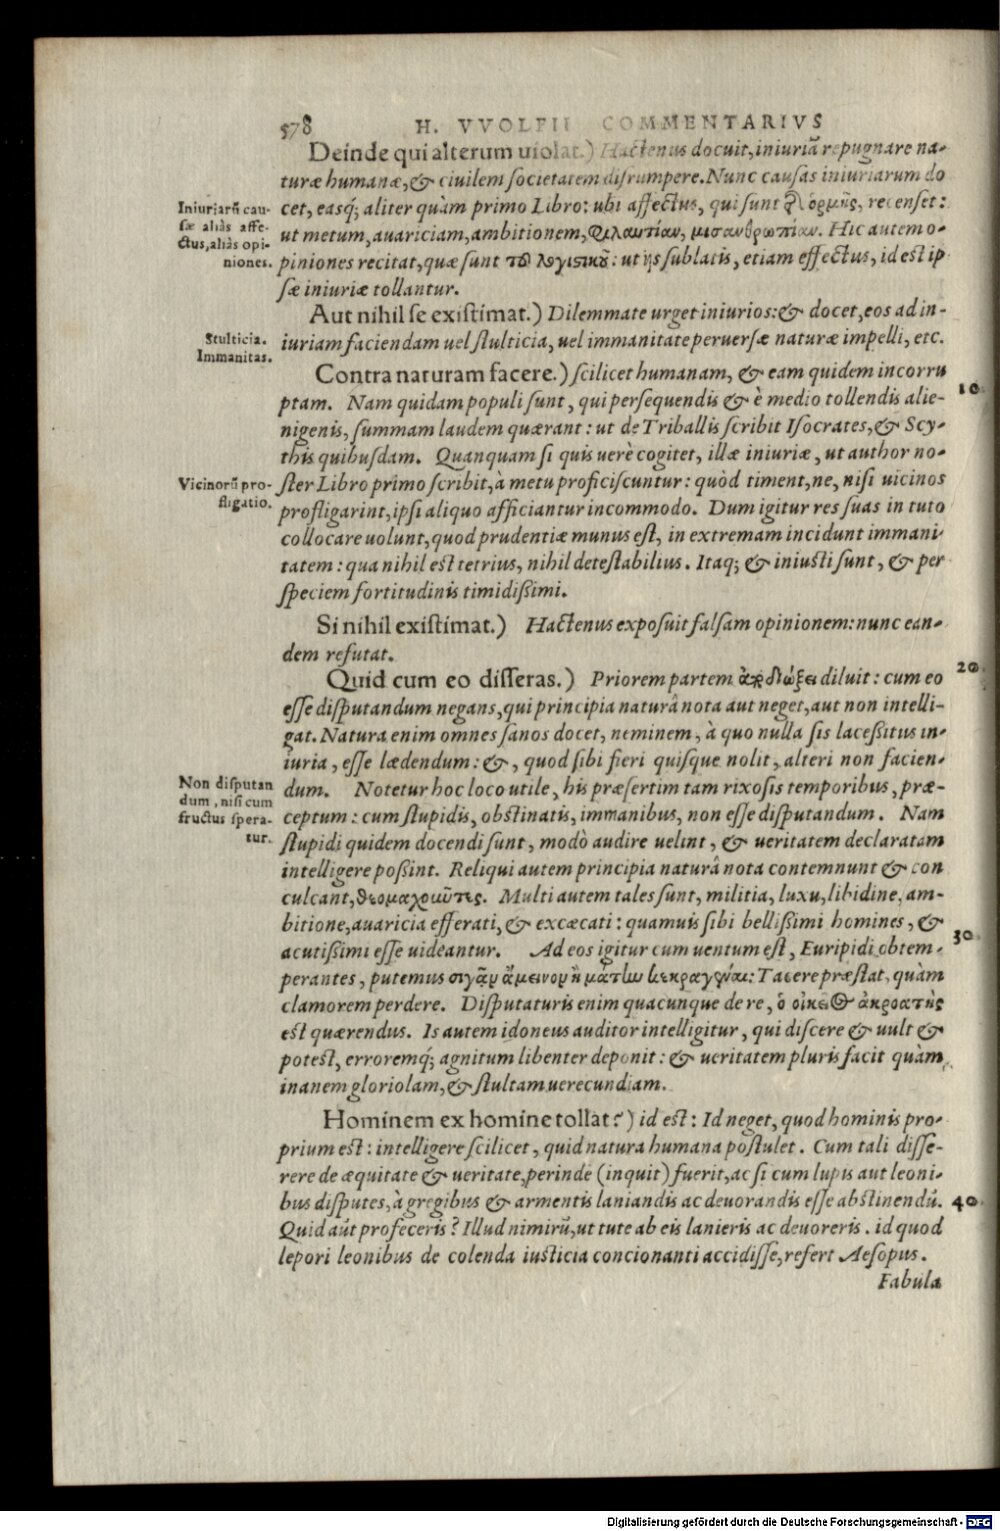 578 H. VVOLFII COMMENTARIVS
Deinde qui alterum uiolat.) Hactenus docuit, iniuriā repugnare na-
turæ humanæ, & ciuilem societatem disrumpere. Nunc causas iniuriarum do
Iniuriarū cau-
sæ aliàs affe-
ctus, aliàs opi-
niones.
cet, easq́; aliter quàm primo Libro: ubi affectus, qui sunt τῆς ὁρμῆς, recenset:
ut metum, auariciam, ambitionem, φιλαυτίαν, μισανθρωπίαν. Hic autem o-
piniones recitat, quæ sunt τοῦ λογιστικοῦ: ut ijs sublatis, etiam effectus, id est ip
sæ iniuriæ tollantur.
Aut nihil se existimat.) Dilemmate urget iniurios: & docet, eos ad in-
Stulticia.
Immanitas.
iuriam faciendam uel stulticia, uel immanitate peruersæ naturæ impelli, etc.
Contra naturam facere.) scilicet humanam, & eam quidem incorru
10
ptam. Nam quidam populi sunt, qui persequendis & è medio tollendis alie-
nigenis, summam laudem quærant: ut de Triballis scribit Isocrates, & Scy-
this quibusdam. Quanquam si quis uerè cogitet, illæ iniuriæ, ut author no-
Vicinorū pro-
fligatio.
ster Libro primo scribit, à metu proficiscuntur: quòd timent, ne, nisi uicinos
profligarint, ipsi aliquo afficiantur incommodo. Dum igitur res suas in tuto
collocare uolunt, quod prudentiæ munus est, in extremam incidunt immani-
tatem: qua nihil est tetrius, nihil detestabilius. Itaq; & iniusti sunt, & per
speciem fortitudinis timidißimi.
Si nihil existimat.) Hactenus exposuit falsam opinionem: nunc ean-
dem refutat.
20
Quid cum eo disseras.) Priorem partem παραδείξει diluit: cum eo
esse disputandum negans, qui principia naturâ nota aut neget, aut non intelli-
gat. Natura enim omnes sanos docet, neminem, à quo nulla sis laceßitus in-
iuria, esse lædendum: &, quod sibi fieri quisque nolit, alteri non facien-
Non disputan
dum, nisi cum
fructus spera-
tur.
dum. Notetur hoc loco utile, his præsertim tam rixosis temporibus, præ-
ceptum: cum stupidis, obstinatis, immanibus, non esse disputandum. Nam
stupidi quidem docendi sunt, modò audire uelint, & ueritatem declaratam
intelligere poßint. Reliqui autem principia naturâ nota contemnunt & con
culcant, θεομαχοῦντες. Multi autem tales sunt, militia, luxu, libidine, am-
bitione, auaricia efferati, & excæcati: quamuis sibi bellißimi homines, &
30
acutißimi esse uideantur. Ad eos igitur cum uentum est, Euripidi obtem-
perantes, putemus σιγᾷν ἄμεινον ἢ μάτην κεκραγέναι: Tacere præstat, quàm
clamorem perdere. Disputaturis enim quacunque de re, ὁ οἰκεῖος ἀκροατὴς
est quærendus. Is autem idoneus auditor intelligitur, qui discere & uult &
potest, erroremq́; agnitum libenter deponit: & ueritatem pluris facit quàm
inanem gloriolam, & stultam uerecundiam.
Hominem ex homine tollat?) id est: Id neget, quod hominis pro-
prium est: intelligere scilicet, quid natura humana postulet. Cum tali disse-
rere de æquitate & ueritate, perinde (inquit) fuerit, ac si cum lupis aut leoni-
bus disputes, à gregibus & armentis laniandis ac deuorandis esse abstinendū.
40
Quid aūt profeceris? Illud nimirū, ut tute ab eis lanieris ac deuoreris. id quod
lepori leonibus de colenda iusticia concionanti accidisse, refert Aesopus.
Fabula
Digitalisierung gefördert durch die Deutsche Forschungsgemeinschaft - DFG